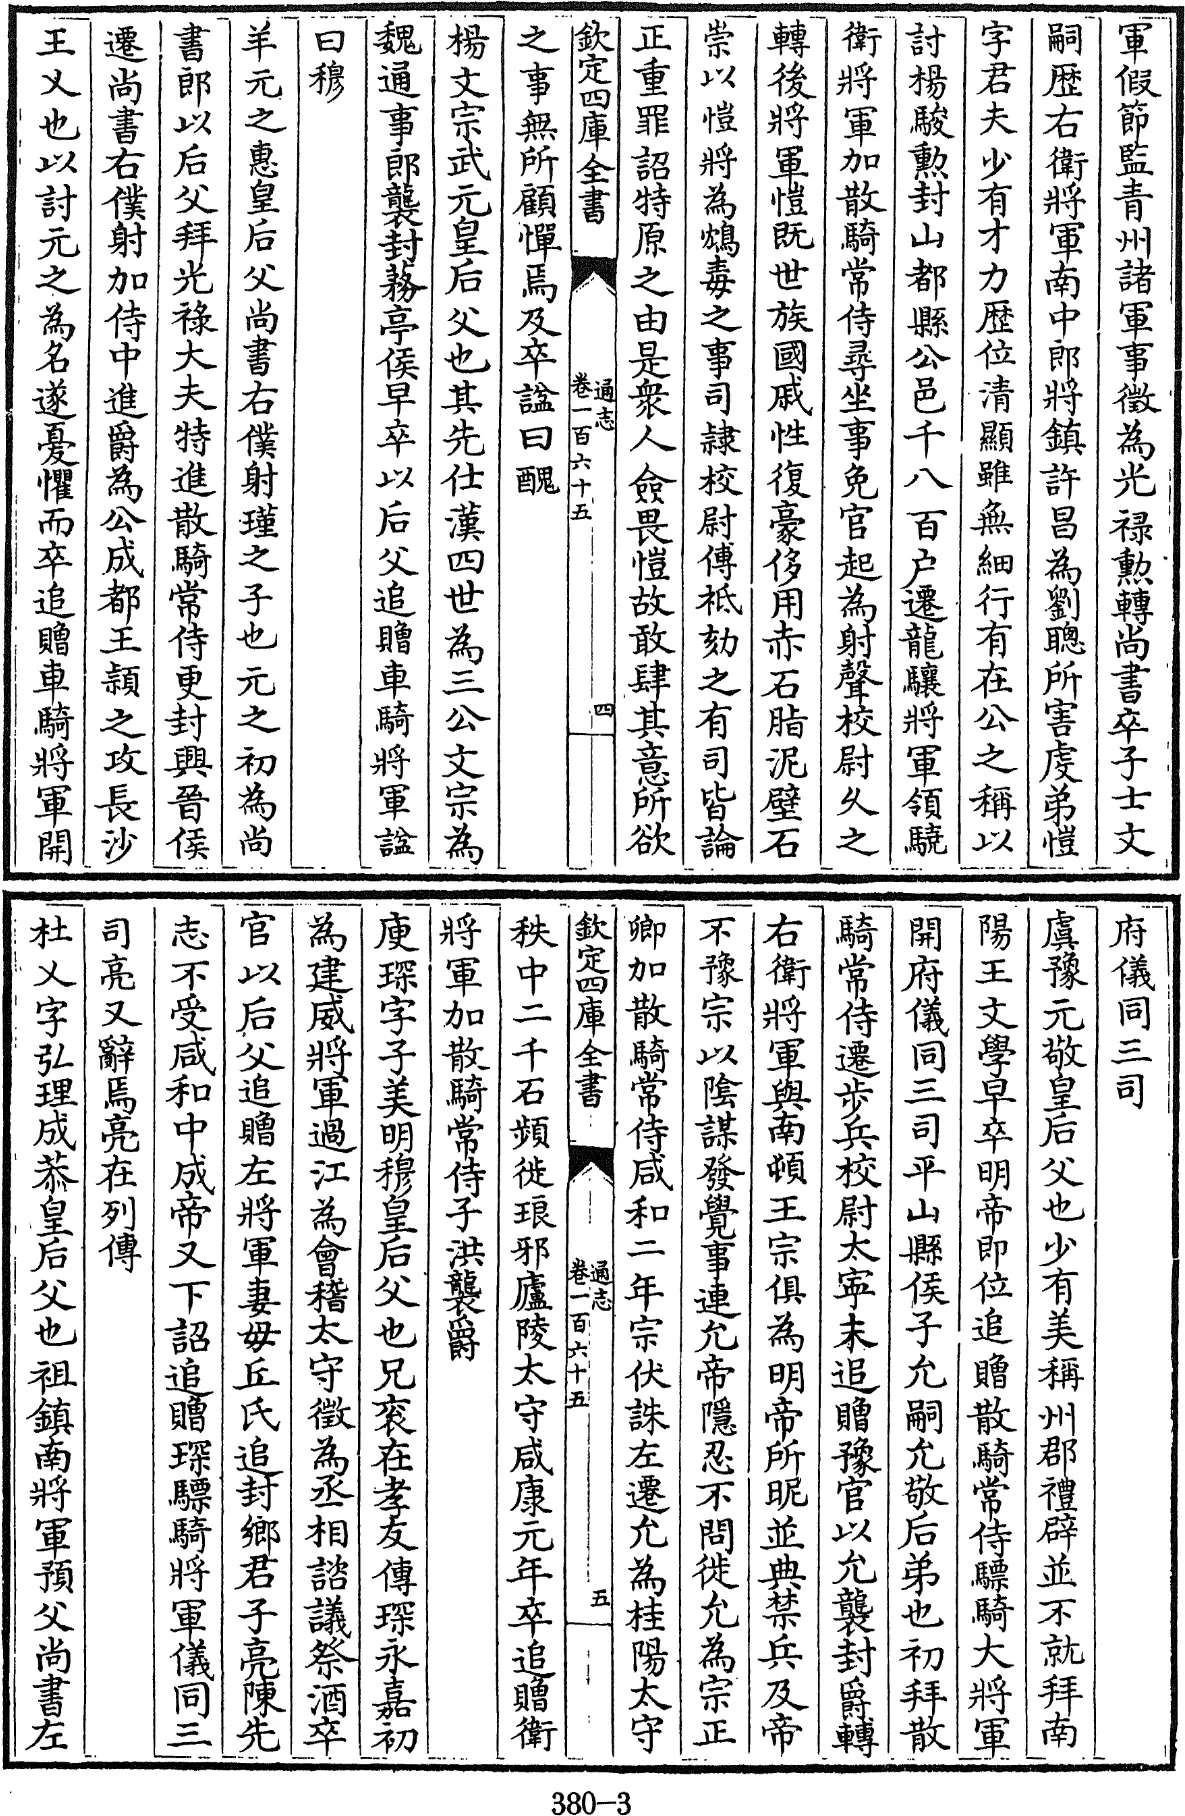 軍假節監青州諸軍事徵為光禄勲轉尚書卒子士文
嗣歴右衛將軍南中郎將鎮許昌為劉聰所害虔弟愷
字君夫少有才力歴位清顯雖無細行有在公之稱以
討楊駿勲封山都縣公邑千八百户遷龍驤將軍領驍
衛將軍加散騎常侍尋坐事免官起為射聲校尉久之
轉後將軍愷既世族國戚性復豪侈用赤石脂泥壁石
崇以愷將為鴆毒之事司隷校尉傅祗劾之有司皆論
正重罪詔特原之由是衆人僉畏愷故敢肆其意所欲
欽定四庫全書 通志 卷一百六十五 四
之事無所顧憚焉及卒諡曰醜
楊文宗武元皇后父也其先仕漢四世為三公文宗為
魏通事郎襲封蓩亭侯早卒以后父追贈車騎將軍諡
曰穆
羊元之惠皇后父尚書右僕射瑾之子也元之初為尚
書郎以后父拜光祿大夫特進散騎常侍更封興晉侯
遷尚書右僕射加侍中進爵為公成都王頴之攻長沙
王乂也以討元之為名遂憂懼而卒追贈車騎將軍開
府儀同三司
虞豫元敬皇后父也少有美稱州郡禮辟並不就拜南
陽王文學早卒明帝即位追贈散騎常侍驃騎大將軍
開府儀同三司平山縣侯子允嗣允敬后弟也初拜散
騎常侍遷步兵校尉太寜末追贈豫官以允襲封爵轉
右衛將軍與南頓王宗俱為明帝所昵並典禁兵及帝
不豫宗以陰謀發覺事連允帝隱忍不問徙允為宗正
卿加散騎常侍咸和二年宗伏誅左遷允為桂陽太守
欽定四庫全書 通志 卷一百六十五 五
秩中二千石頻徙琅邪廬陵太守咸康元年卒追贈衛
將軍加散騎常侍子洪襲爵
庾琛字子美明穆皇后父也兄衮在孝友傳琛永嘉初
為建威將軍過江為會稽太守徵為丞相諮議祭酒卒
官以后父追贈左將軍妻毋丘氏追封鄉君子亮陳先
志不受咸和中成帝又下詔追贈琛驃騎將軍儀同三
司亮又辭焉亮在列傳
杜乂字弘理成恭皇后父也祖鎮南將軍預父尚書左
380-3